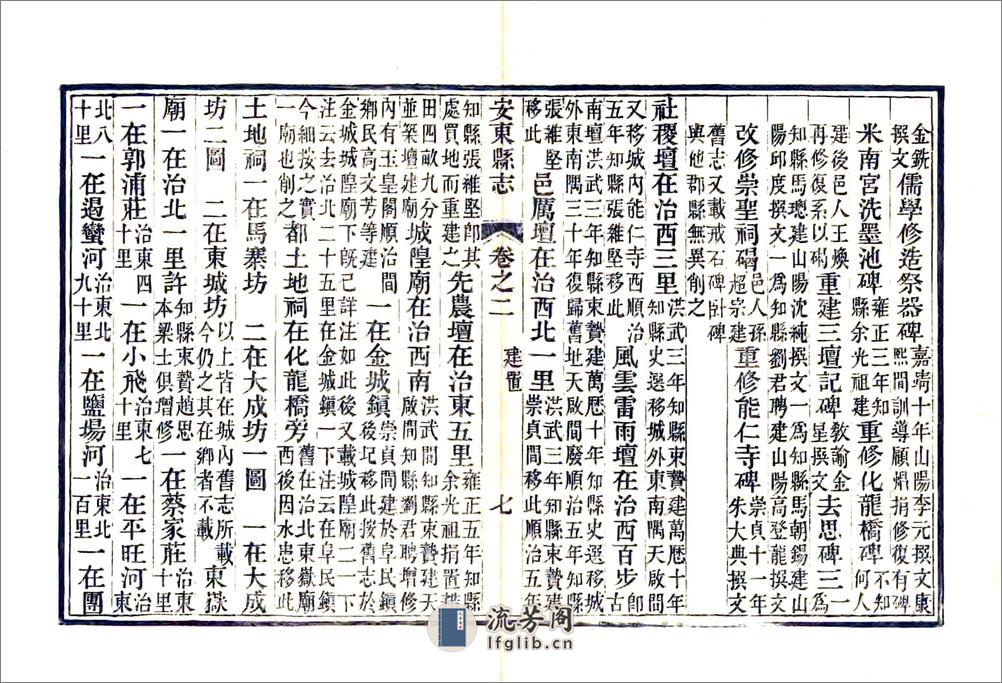 金銑撰文儒學修造祭器碑嘉靖十年山陽李元撰文康熙間訓導顧焜捐修復有碑
米南宮洗墨池碑雍正三年知縣余光祖建重修化龍橋碑不知何人
建後邑人王煥再修復系以碣重建三壇記碑教諭金星撰文去思碑三一爲
知縣馬璁建山陽沈純撰文一爲知縣馬朝錫建山陽邱度撰文一爲知縣劉君聘建山陽高登龍撰文
改修崇聖祠碣邑人孫超宗建重修能仁寺碑崇貞十一年朱大典撰文
舊志又載戒石碑卧碑與他郡縣無異削之
社稷壇在治西三里洪武三年知縣東贊建萬厯十年知縣史選移城外東南隅天啟間
又移城內能仁寺西順治五年知縣張維堅移此風雲雷雨壇在治西百步卽古
南壇洪武三年知縣東贊建萬厯十年知縣史選移城外東南隅三十年復歸舊址天啟間廢順治五年知縣
張維堅移此邑厲壇在治西北一里洪武三年知縣東贊建崇貞間移此順治五年
安東縣志 卷之二 建置 七
知縣張維堅卽其處買地而重建之先農壇在治東五里雍正五年知縣余光祖捐置耤
田四畝九分並築壇建廟城隍廟在治西南洪武間知縣東贊建天啟間知縣劉君聘增修
內有玉皇閣順治間鄉民高文芳等建一在金城鎮崇貞間建於阜民鎮後圮移此按舊志於
金城城隍廟下既已詳注如此後又載城隍廟二一下注云去治北二十五里在金城鎮一下注云在阜民鎮
今細按之實一廟也削之都土地祠在化龍橋旁舊在治北東嶽廟西後因水患移此
土地祠一在馬寨坊 二在大成坊一圖 一在大成
坊二圖 二在東城坊以上皆在城內舊志所載今仍之其在鄉者不載東嶽
廟一在治北一里許知縣東贊趙思本梁士俱增修一在蔡家莊治東十里
一在郭浦莊治東四十里一在小飛治東七十里一在平旺河治東
北八十里一在遏蠻河治東北九十里一在鹽場河治東北一百里一在團
流芳阁
lfglib.cn